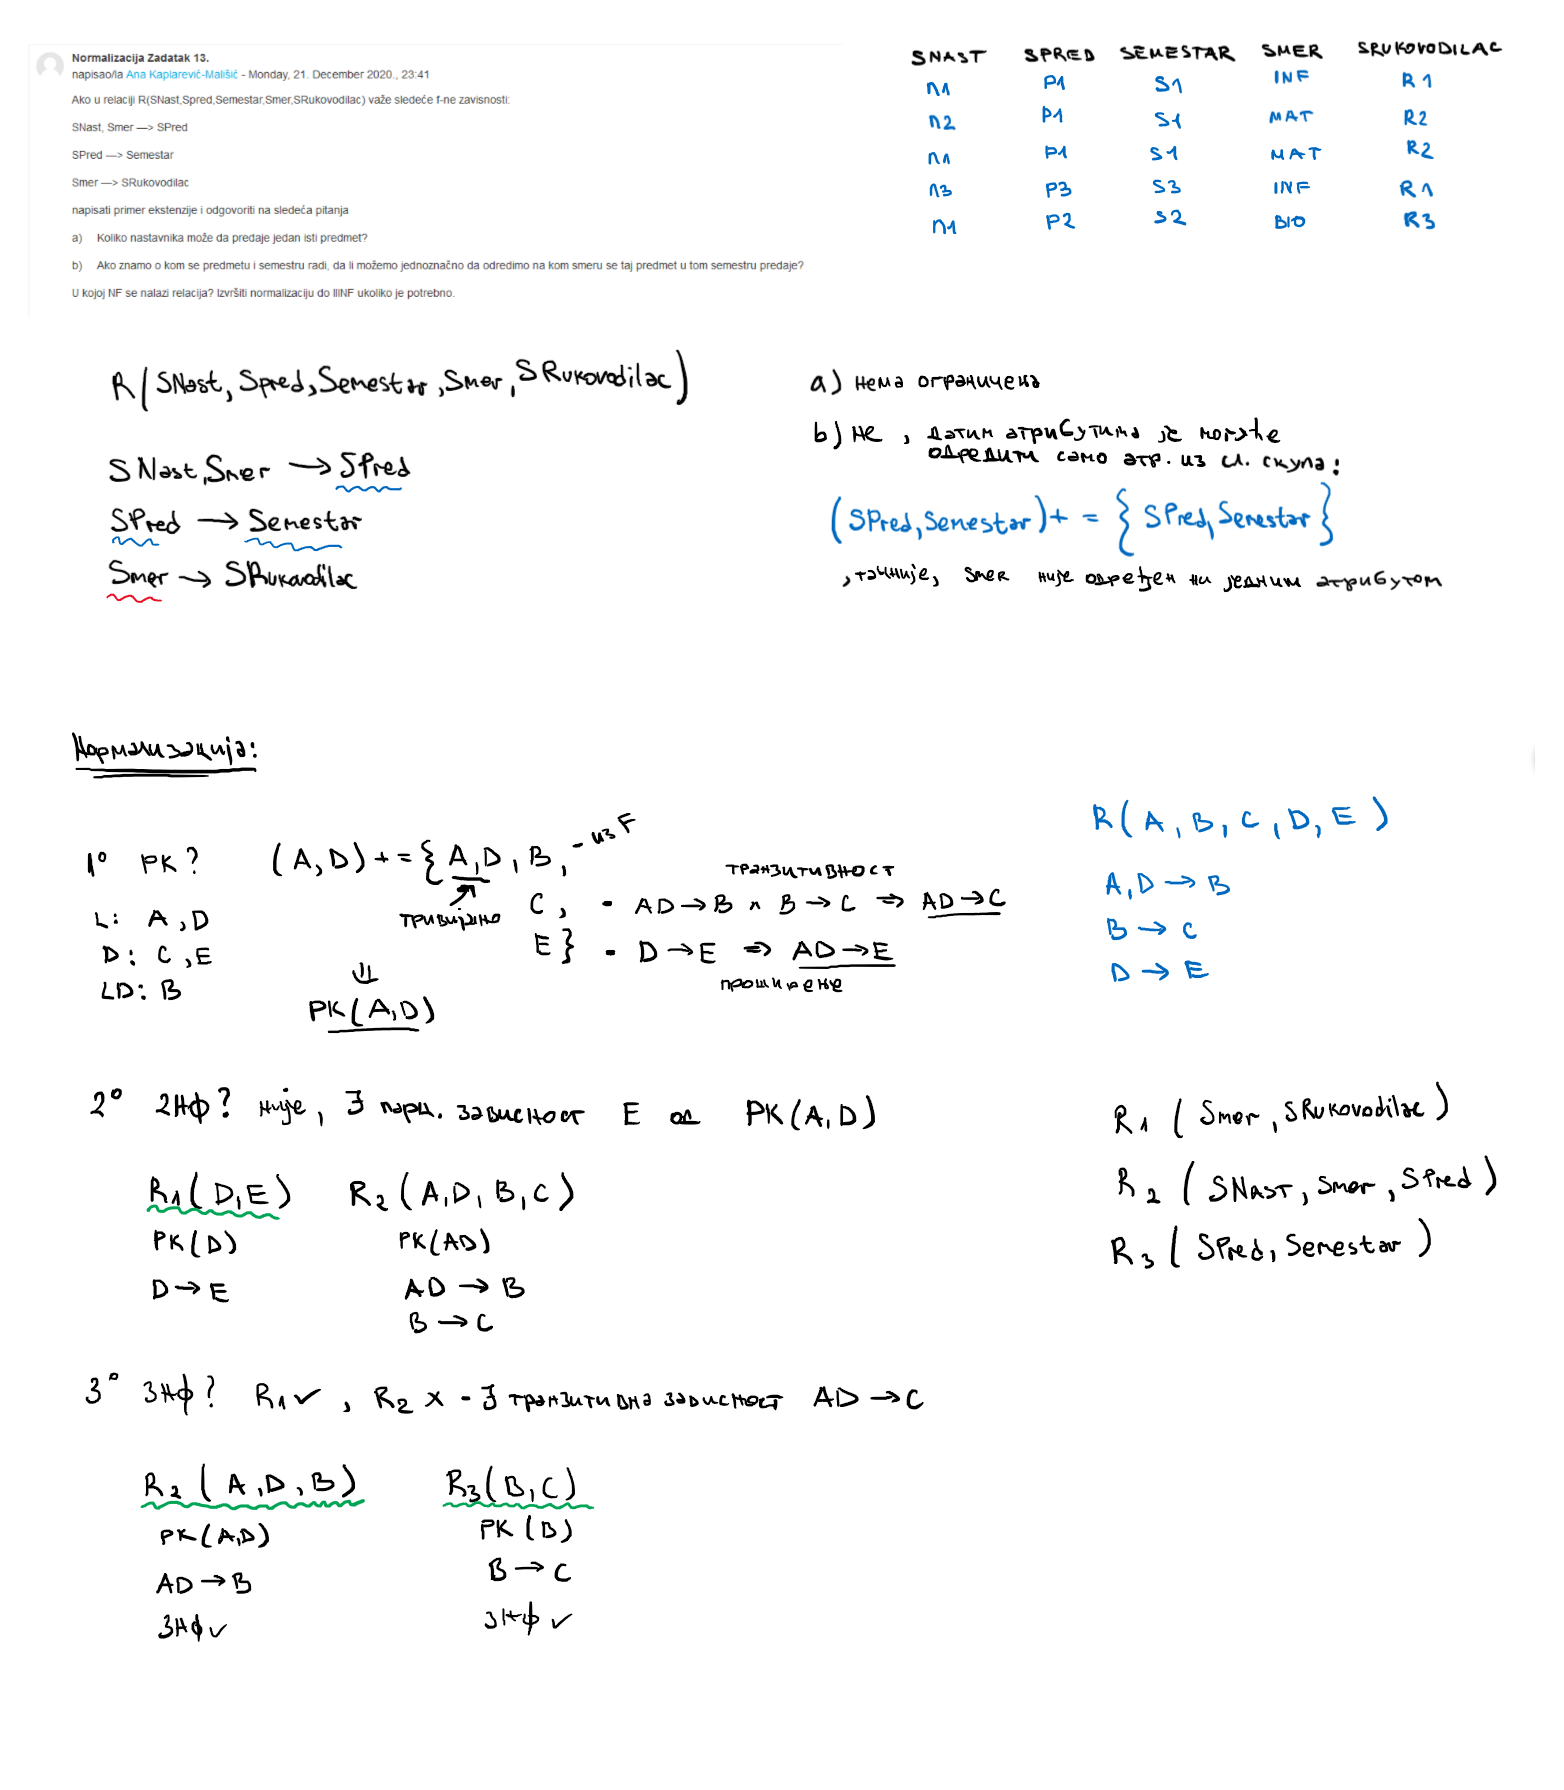 Normalizacija Zadatak 13.
napisao/la Ana Kaplarević-Mališić - Monday, 21. December 2020., 23:41
Ako u relaciji R(SNast,Spred,Semestar,Smer,SRukovodilac) važe sledeće f-ne zavisnosti:
SNast, Smer —> SPred
SPred —> Semestar
Smer —> SRukovodilac
napisati primer ekstenzije i odgovoriti na sledeća pitanja
a) Koliko nastavnika može da predaje jedan isti predmet?
b) Ako znamo o kom se predmetu i semestru radi, da li možemo jednoznačno da odredimo na kom smeru se taj predmet u tom semestru predaje?
U kojoj NF se nalazi relacija? Izvršiti normalizaciju do IIINF ukoliko je potrebno.
SNAST SPRED SEMESTAR SMER SRUKOVODILAC
n1 P1 S1 INF R1
n2 P1 S1 MAT R2
n1 P1 S1 MAT R2
n3 P3 S3 INF R1
n1 P2 S2 BIO R3
R(SNast, Spred, Semestar, Smer, SRukovodilac)
SNast, Smer → SPred
SPred → Semestar
Smer → SRukovodilac
a) нема ограничења
b) не, датим атрибутима је могуће
одредити само атр. из сл. скупа:
(SPred, Semestar)+ = {SPred, Semestar}
, тачније, smer није одређен ни једним атрибутом
Нормализација:
1° PK? (A,D)+ = {A,D, B, - из F
тривијално
C, - AD→B ∧ B→C ⇒ AD→C
транзитивност
E} - D→E ⇒ AD→E
проширење
L: A,D
D: C,E
LD: B
⇓
PK(A,D)
R(A,B,C,D,E)
A,D → B
B → C
D → E
2° 2НФ? није, ∃ парц. зависност E од PK(A,D)
R1(D,E) R2(A,D,B,C)
PK(D) PK(AD)
D→E AD → B
B → C
R1 (Smer, SRukovodilac)
R2 (SNast, Smer, SPred)
R3 (SPred, Semestar)
3° 3НФ? R1 ✓, R2 x - ∃ транзитивна зависност AD→C
R2 (A,D,B) R3(B,C)
PK(A,D) PK(B)
AD→B B→C
3НФ ✓ 3НФ ✓